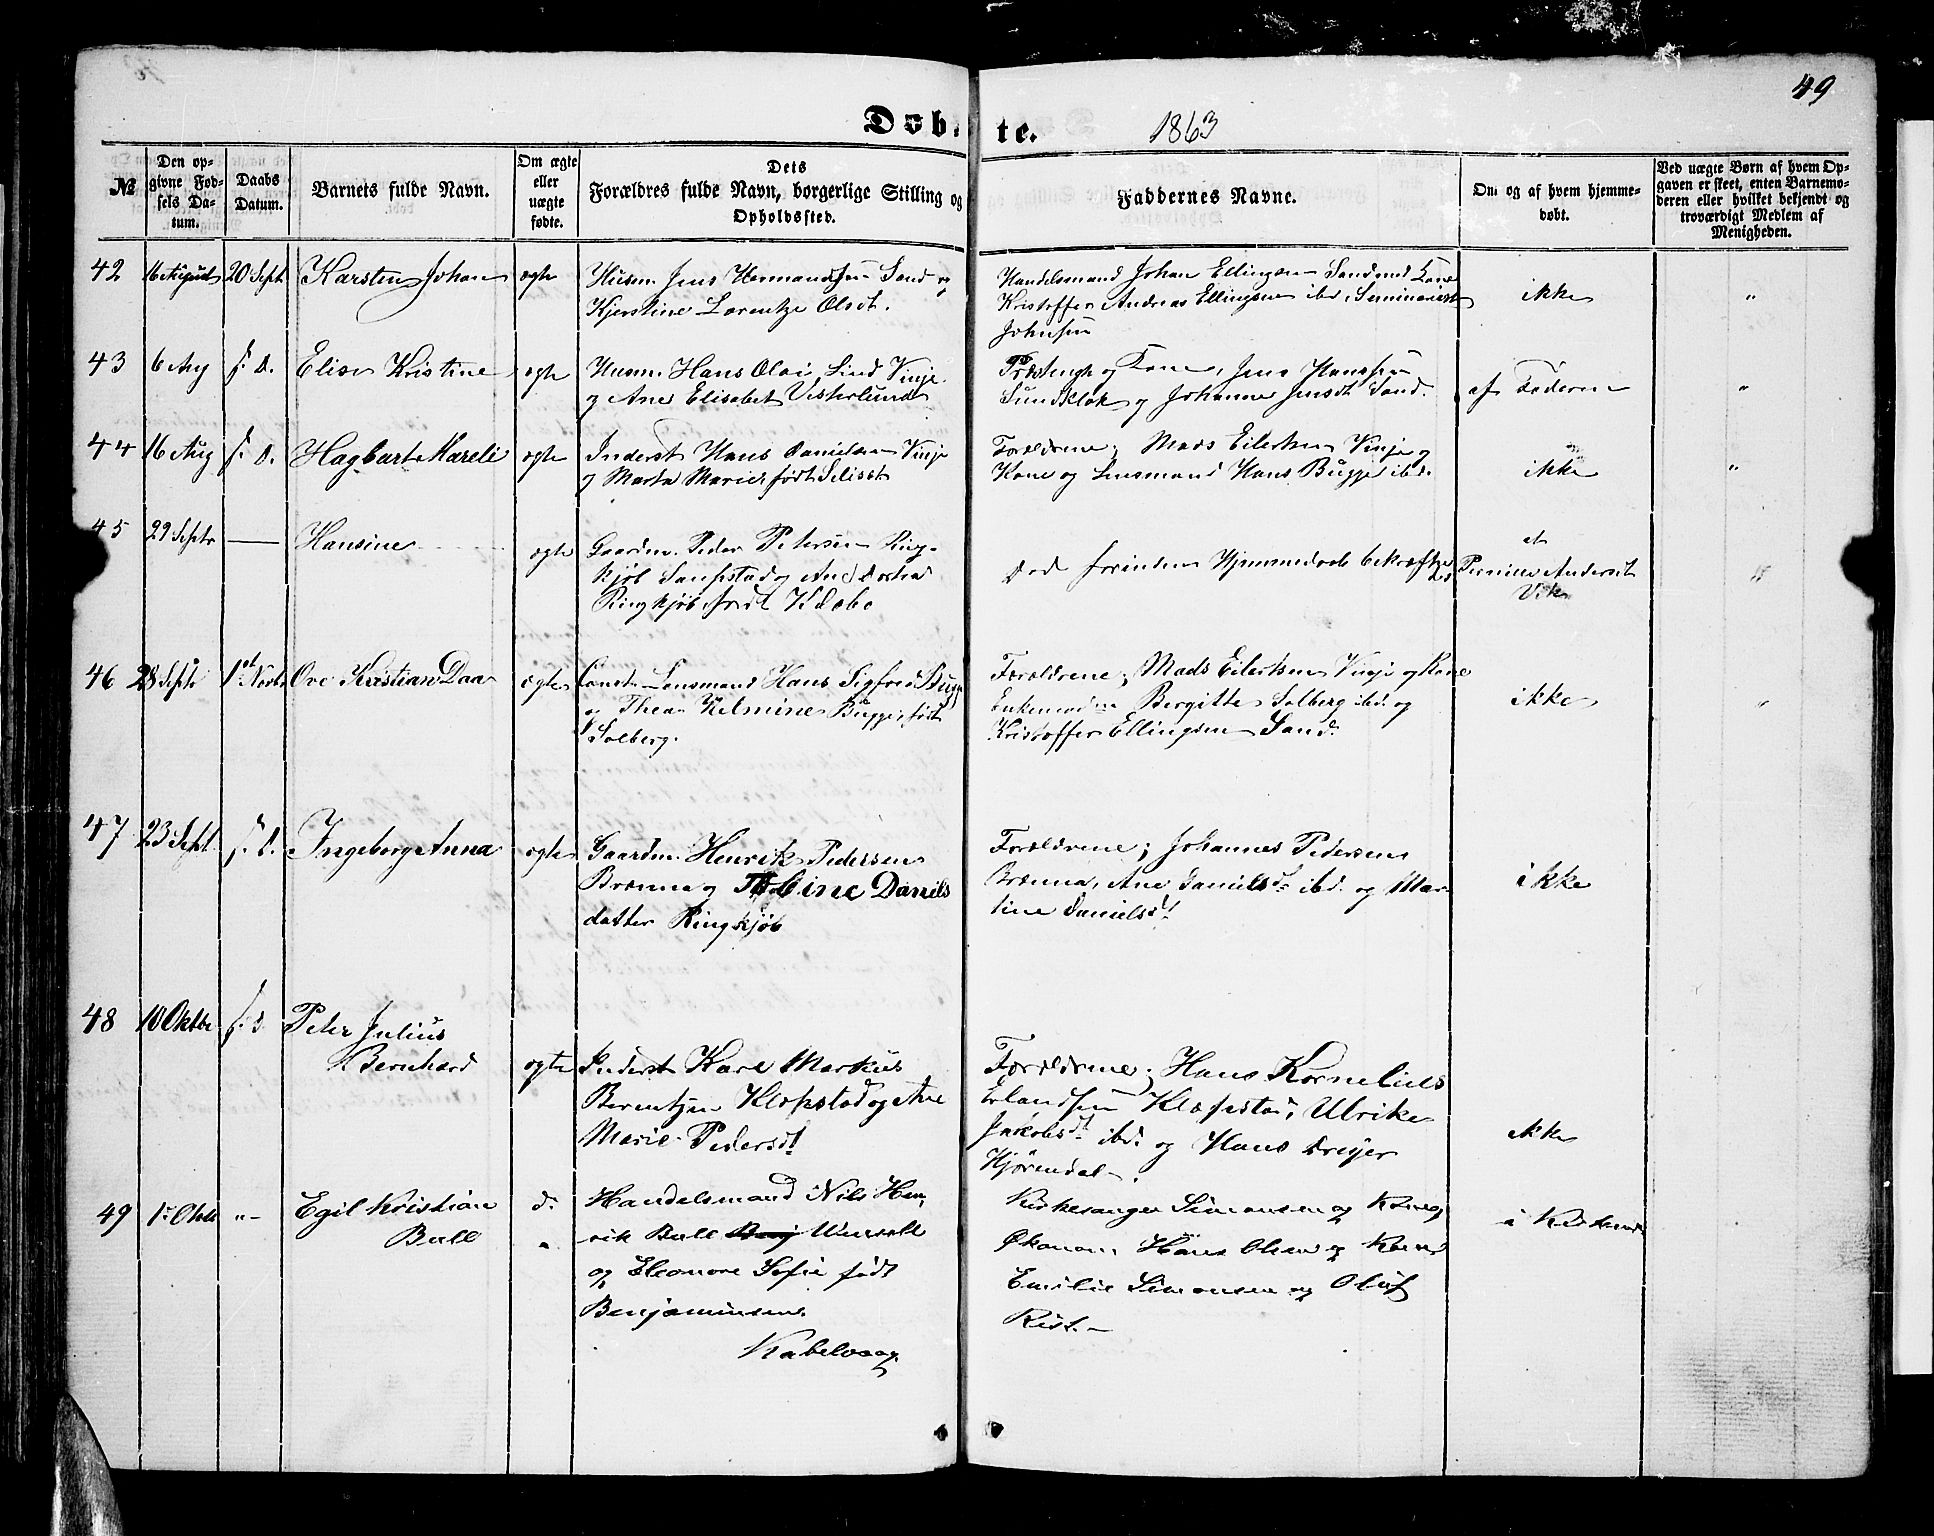 49
Døbte. 1863
№
Den opgivne Fødsels Datum.
Daabs Datum.
Barnets fulde Navn.
Om ægte eller uægte fødte.
Dets Forældres fulde Navn, borgerlige Stilling og Opholdssted.
Faddernes Navne.
Om og af hvem hjemmedøbt.
Ved uægte Børn af hvem Opgaven er skeet, enten Barnemoderen eller hvilket bekjendt og troværdigt Medlem af Menigheden.
42 16 August 20 Sept Karsten Johan ægte
Husm. Jens Hermandsen Sand og
Kjerstine Lorentze Olsdt.
Handelsmand Johan Ellingsen Sand med Kone
Kristoffer Andreas Ellingsen ibd, Seminarist
Johnsen
ikke "
43 6 Aug s. D. Elise Kristine ægte
Husm. Hans Olai Lind Vinje
og Ane Elisabet Vesterlund
og Kone, Jens Hanssen
Sundklak og Johanna Jensdt Sand.
af Faderen "
44 16 Aug s. D. Hagbart Mareli ægte
Inderst Hans Danielsen Vinje
og Marta Marie født
Forældrene; Mads Eilertsen Vinje og
Kone og Lensmand Hans Bugge ibd.
ikke "
45 29 Septr — Hansine ægte
Gaardm. Peder Petersen Ring-
kjøb og
Ringkjøb født Klæbo
Død forinden Hjemmedaab bekræftet
af
Andersdt
Vik
"
46 28 Septr 1st Novbr Ove Kristian Daa ægte
Const. Lensmand Hans Sigfred Bugge
og Thea Vilmine Bugge, født
Solberg.
Forældrene; Mads Eilertsen Vinje og Kone
Enkemadme Bergitte Solberg ibd. og
Kristoffer Ellingsen Sand.
ikke "
47 23 Sept. s. D. Ingeborg Anna ægte
Gaardm. Henrik Pedersen
Brænna og Daniels
datter Ringkjøb
Forældrene; Johannes Pedersen
Brænna, Ane Danielsdt ibd. og Mar-
tine Danielsdt
ikke
48 10 Oktbr s. D. Peter Julius
Bernhard
ægte
Inderst Karl Markus
Berentzen Klopstad og Ane
Marie Pedersdt
Forældrene; Hans Kornelius
Erlandsen Klopstad, Ulrike
Jakobsdt ibd. og Hans Dreyer
Hjørendal.
ikke
49 1st Oktb "– Egil Kristian
Bull
d.
"
Handelsmand Nils Hen-
rik Bull
og Eleonore Sofie født
Benjaminsen.
Kabelvaag.
Kirkesanger Simonsen og Kone,
Økonom Hans Olsen og Kone
Emilie Simonsen og Oluf
Rist. –
i Kirken